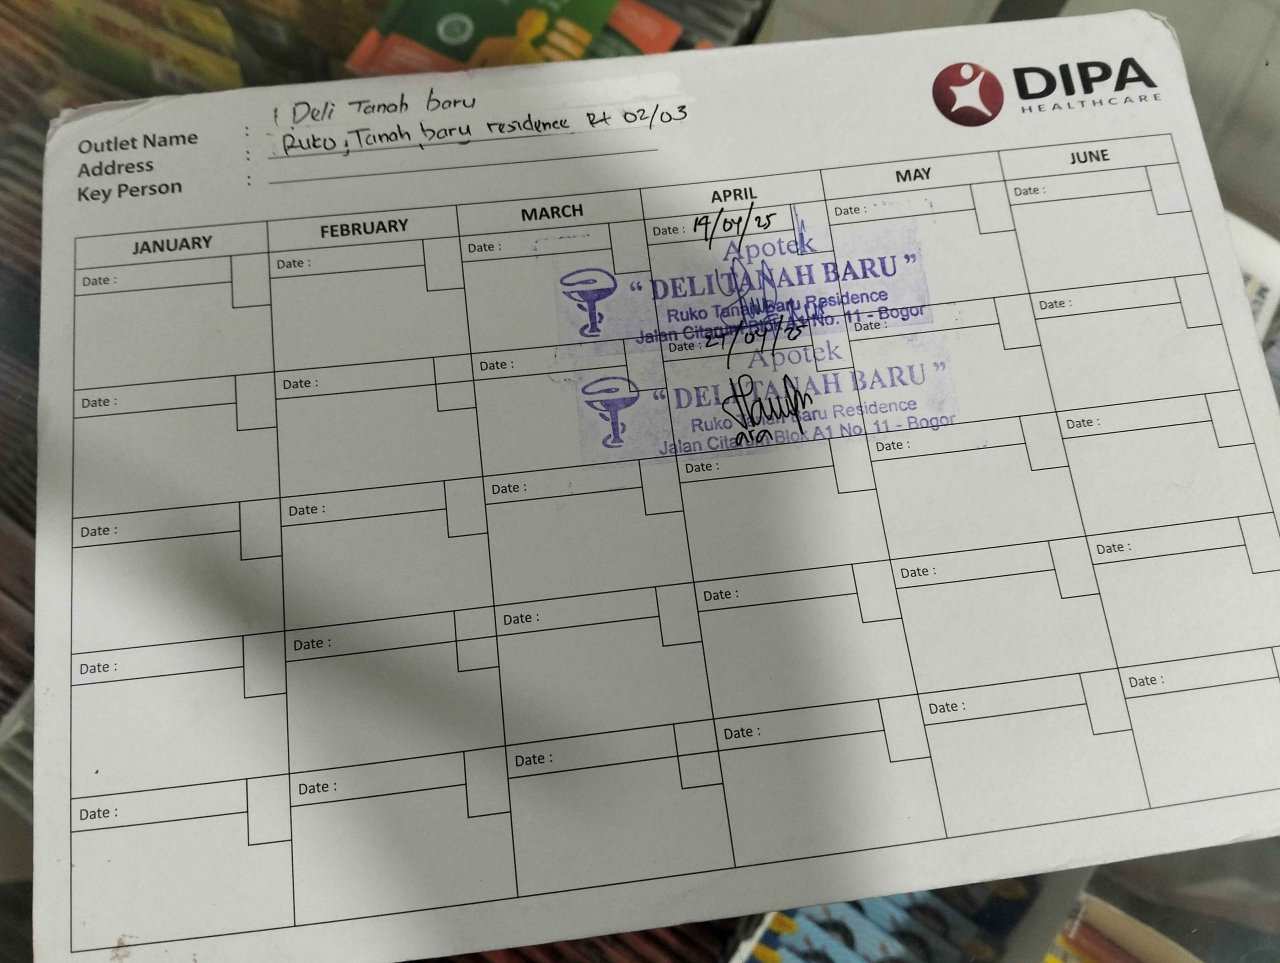 DIPA
HEALTHCARE
Outlet Name : Deli Tanah baru
Address : Ruko, Tanah baru residence Rt 02/03
Key Person :
JANUARY FEBRUARY MARCH APRIL MAY JUNE
Date : Date : Date : Date : 19/04/25 Date : Date :
Apotek
“ DELI TANAH BARU ”
Ruko Tanah Baru Residence
Jalan Citarum Blok A1 No. 11 - Bogor
Date : Date : Date : Date : 27/04/25 Date : Date :
Apotek
“ DELI TANAH BARU ”
Ruko Tanah Baru Residence
Jalan Citarum Blok A1 No. 11 - Bogor
ara
Date : Date : Date : Date : Date : Date :
Date : Date : Date : Date : Date : Date :
Date : Date : Date : Date : Date : Date :